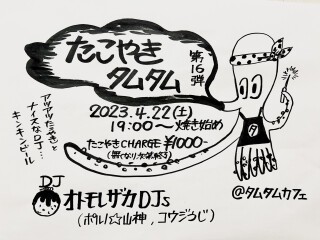 たこやき
タムタム
第16弾
2023.4.22(土)
19:00〜焼き始め
たこやきCHARGE ¥1000-
(無くなり次第終了)
アツアツたこやきと
ナイスなDJ…
キンキンビール
DJ
オトモレザカDJs
(ポルノ☆山神、コウジうじ)
@タムタムカフェ
タ